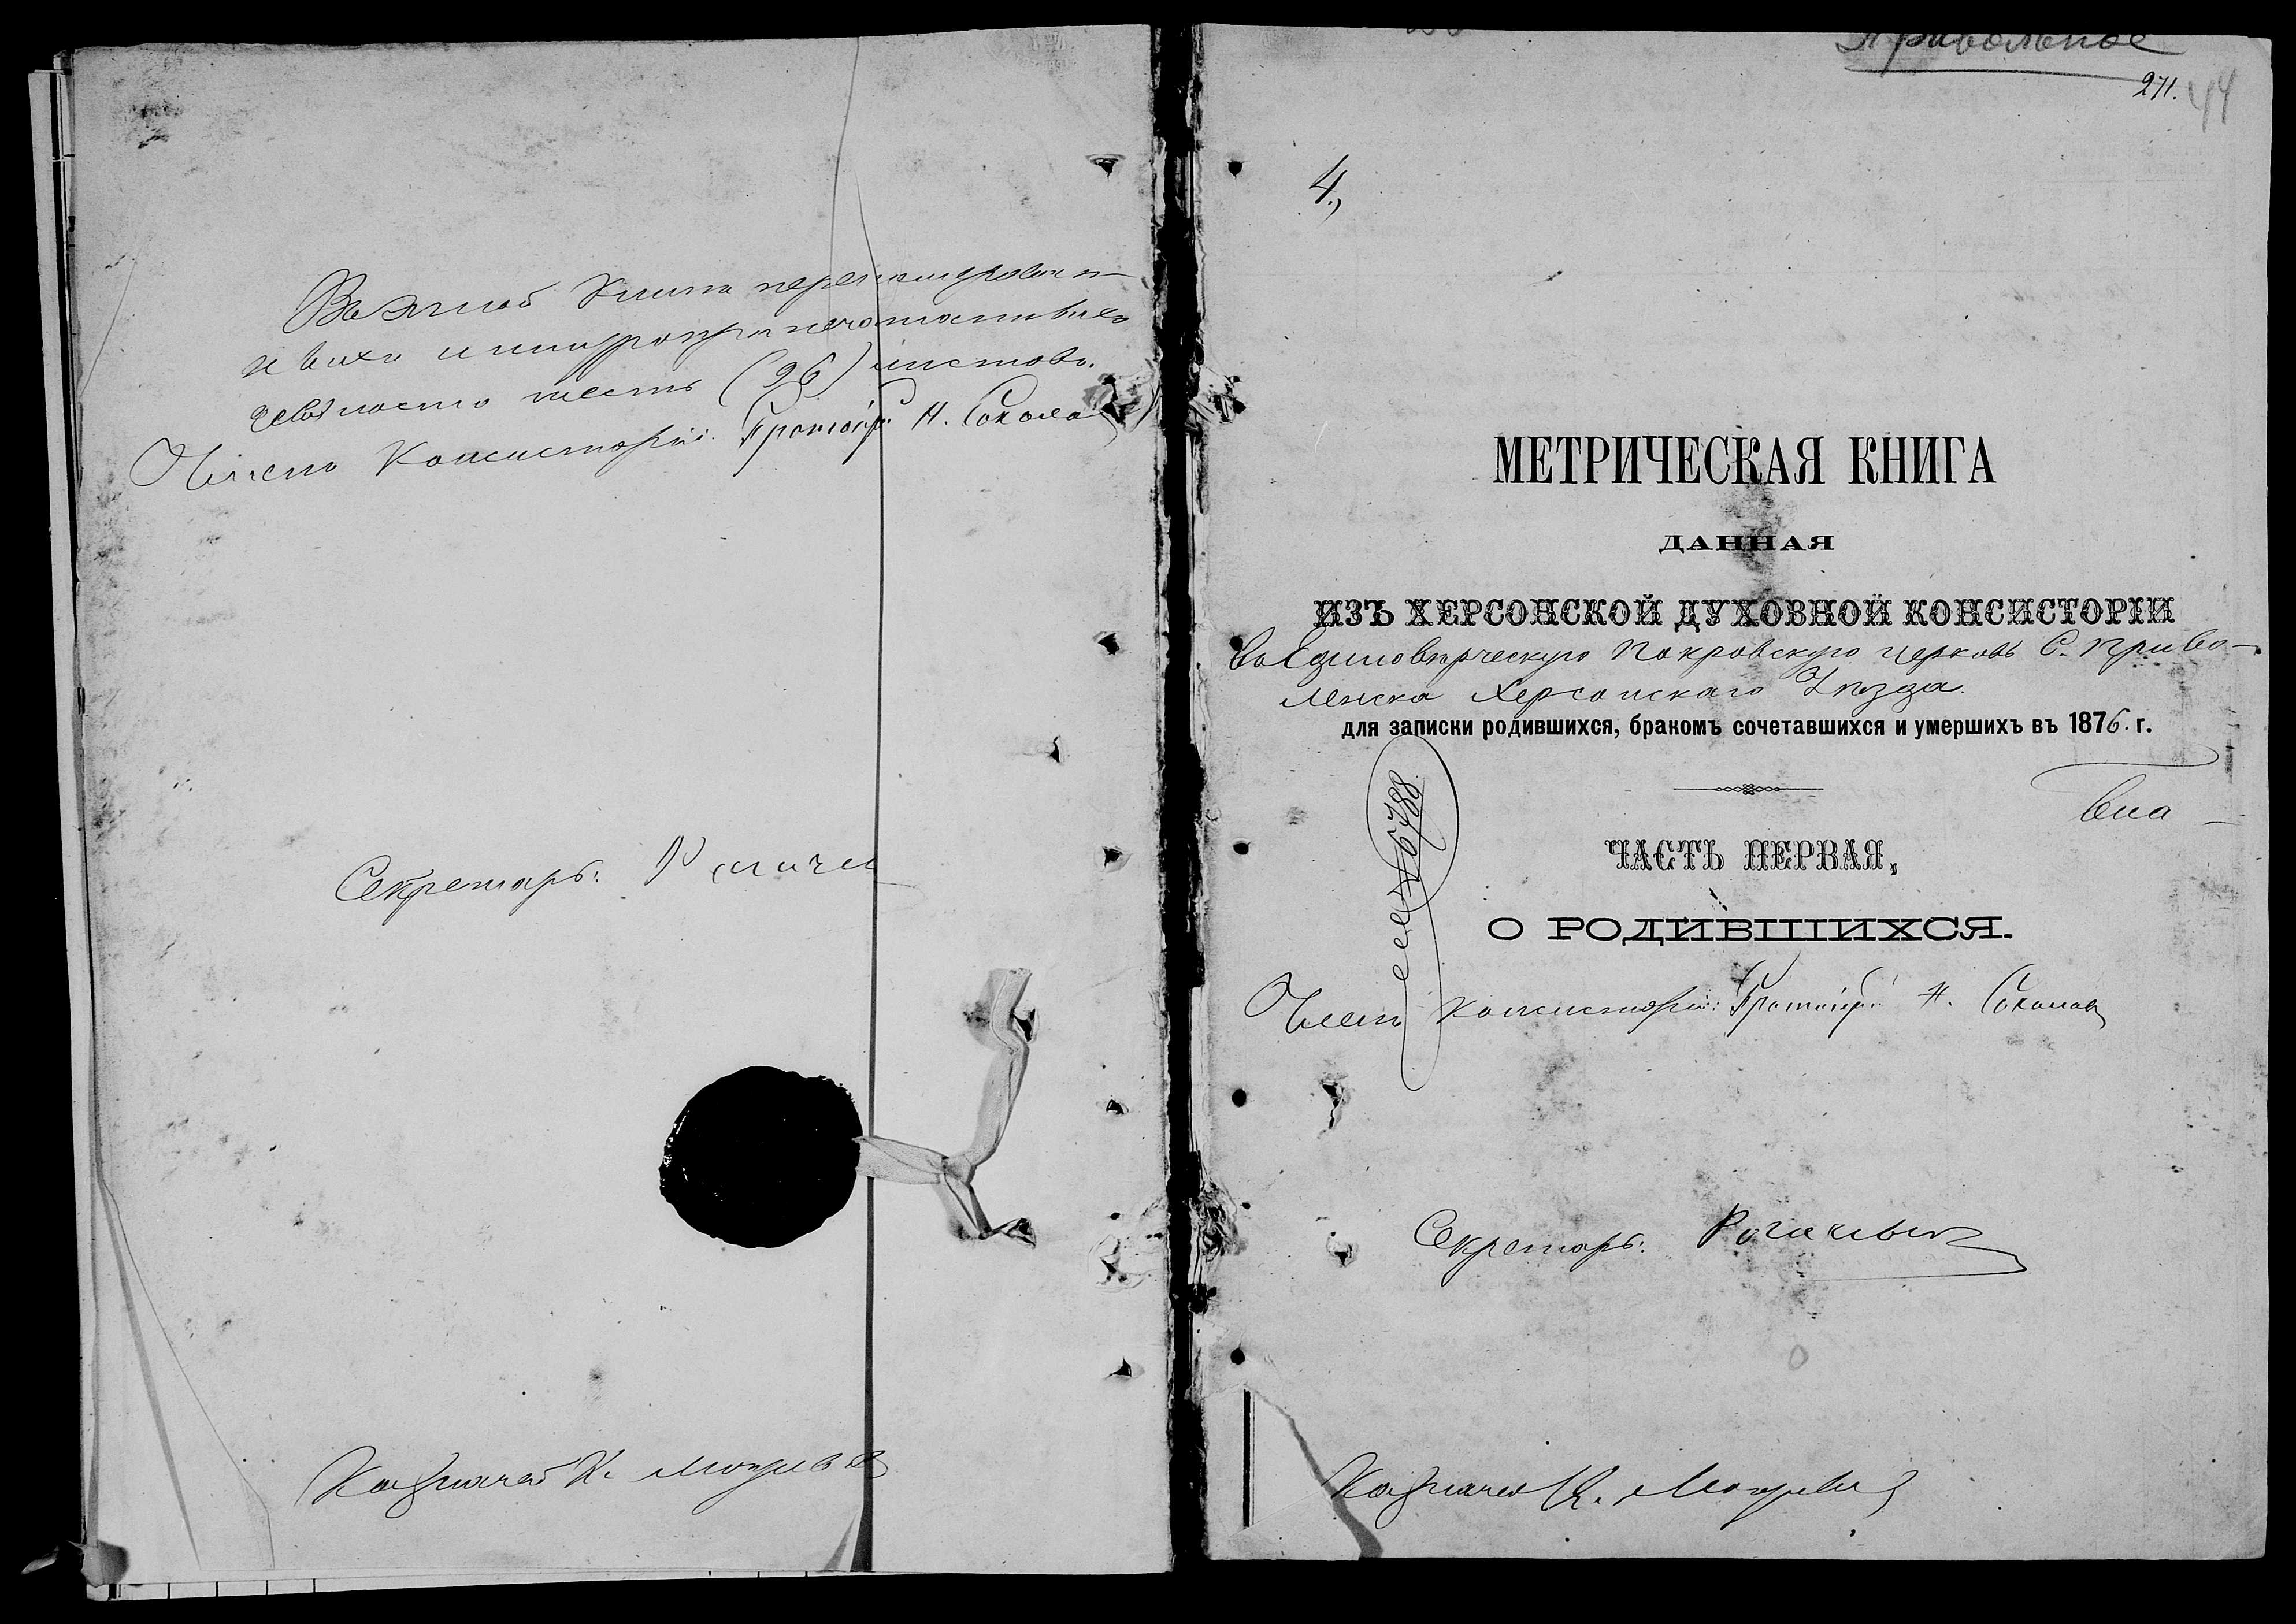 Въ этой Книге перенумерован-
ныхъ и шнуроприпечатанныхъ
девяносто шесть (96) листовъ.
Членъ Консисторіи: Протоіер. Н. Соколов
Секретарь:
Казначей К.
Привольное
271. 44
4,
МЕТРИЧЕСКАЯ КНИГА
ДАННАЯ
ИЗЪ ХЕРСОНСКОЙ ДУХОВНОЙ КОНСИСТОРІИ
въ Единовѣрческую Покровскую церковь С. Приво-
ленска Херсонскаго Уѣзда.
для записки родившихся, бракомъ сочетавшихся и умершихъ въ 1876. г.
№ 6788
ЧАСТЬ ПЕРВАЯ,
О РОДИВШИХСЯ.
Членъ Консисторіи: Протоіер. Н. Соколов
Секретарь:
Казначей К.